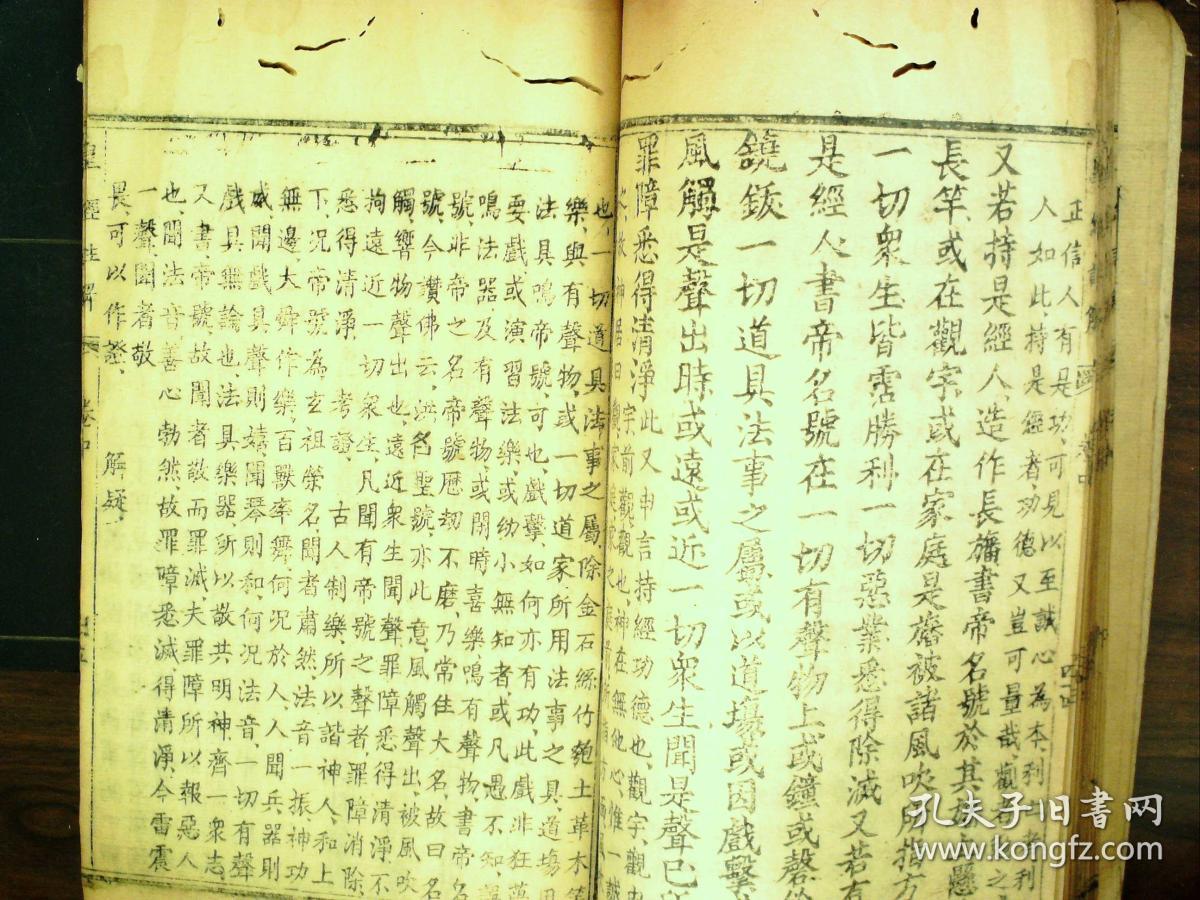 正信人有是功可見以至誠心為本利己者利
人如此持是經者功德又豈可量哉觀者
又若持是經人造作長旛書帝名號於其
長竿或在觀宇或在家庭是旛被諸風吹所指方
一切衆生皆霑勝利一切惡業悉得除滅又若有
是經人書帝名號在一切有聲物上或鐘或磬
鐃鈸一切道具法事之屬或以道場或因戲擊
風觸是聲出時或遠或近一切衆生聞是聲已
罪障悉得清淨此又申言持經功德也觀宇觀
宇前觀觀也神在無他心惟一誠
也一切道具法事之屬除金石絲竹匏土革木等
樂與有聲物或一切道家所用法事之具道塲用
法具鳴帝號可也戲擊如何亦有功此戲非狂
耍戲或演習法樂或幼小無知者或凡愚不知
鳴法器及有聲物或閒時喜樂鳴有聲物書帝名
號非帝之名帝號歷刼不磨乃常住大名故曰名
號今讚佛云洪名聖號亦此意風觸聲出被風吹
觸響物聲出也遠近衆生聞聲罪障悉得清淨不
拘遠近一切衆生凡聞有帝號之聲者罪障消除
悉得清淨 考證 古人制樂所以諧神人和上
下况帝號為玄祖榮名聞者肅然法音一振神功
無邊大舜作樂百獸率舞何况於人人聞兵器則
威聞戲具聲則嬉聞琴則和何况法音一切有聲
戲具無論也法具樂器所以敬共明神齊一衆志
又書帝號故聞者敬而罪滅夫罪障所以報惡人
也聞法音善心勃然故罪障悉滅得清淨今雷震
一聲聞者敬
畏可以作證 解疑
皇經註解 卷中
孔夫子旧书网
www.kongfz.com